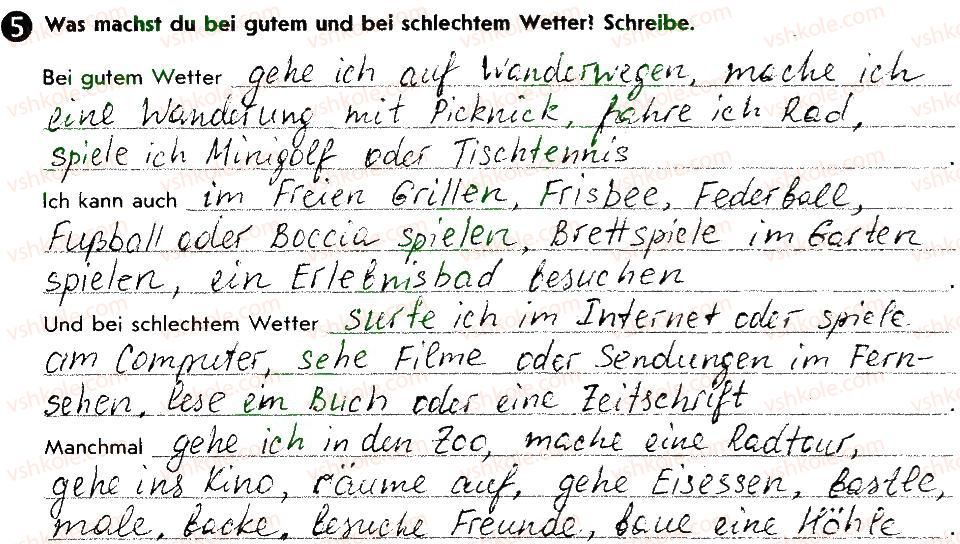 5 Was machst du bei gutem und bei schlechtem Wetter? Schreibe.
Bei gutem Wetter gehe ich auf Wanderwegen, mache ich
eine Wanderung mit Picknick, fahre ich Rad,
spiele ich Minigolf oder Tischtennis.
Ich kann auch im Freien Grillen, Frisbee, Federball,
Fußball oder Boccia spielen, Brettspiele im Garten
spielen, ein Erlebnisbad besuchen.
Und bei schlechtem Wetter surfe ich im Internet oder spiele
am Computer, sehe Filme oder Sendungen im Fern-
sehen, lese ein Buch oder eine Zeitschrift.
Manchmal gehe ich in den Zoo, mache eine Radtour,
gehe ins Kino, räume auf, gehe Eisessen, bastle,
male, backe, besuche Freunde, baue eine Höhle.